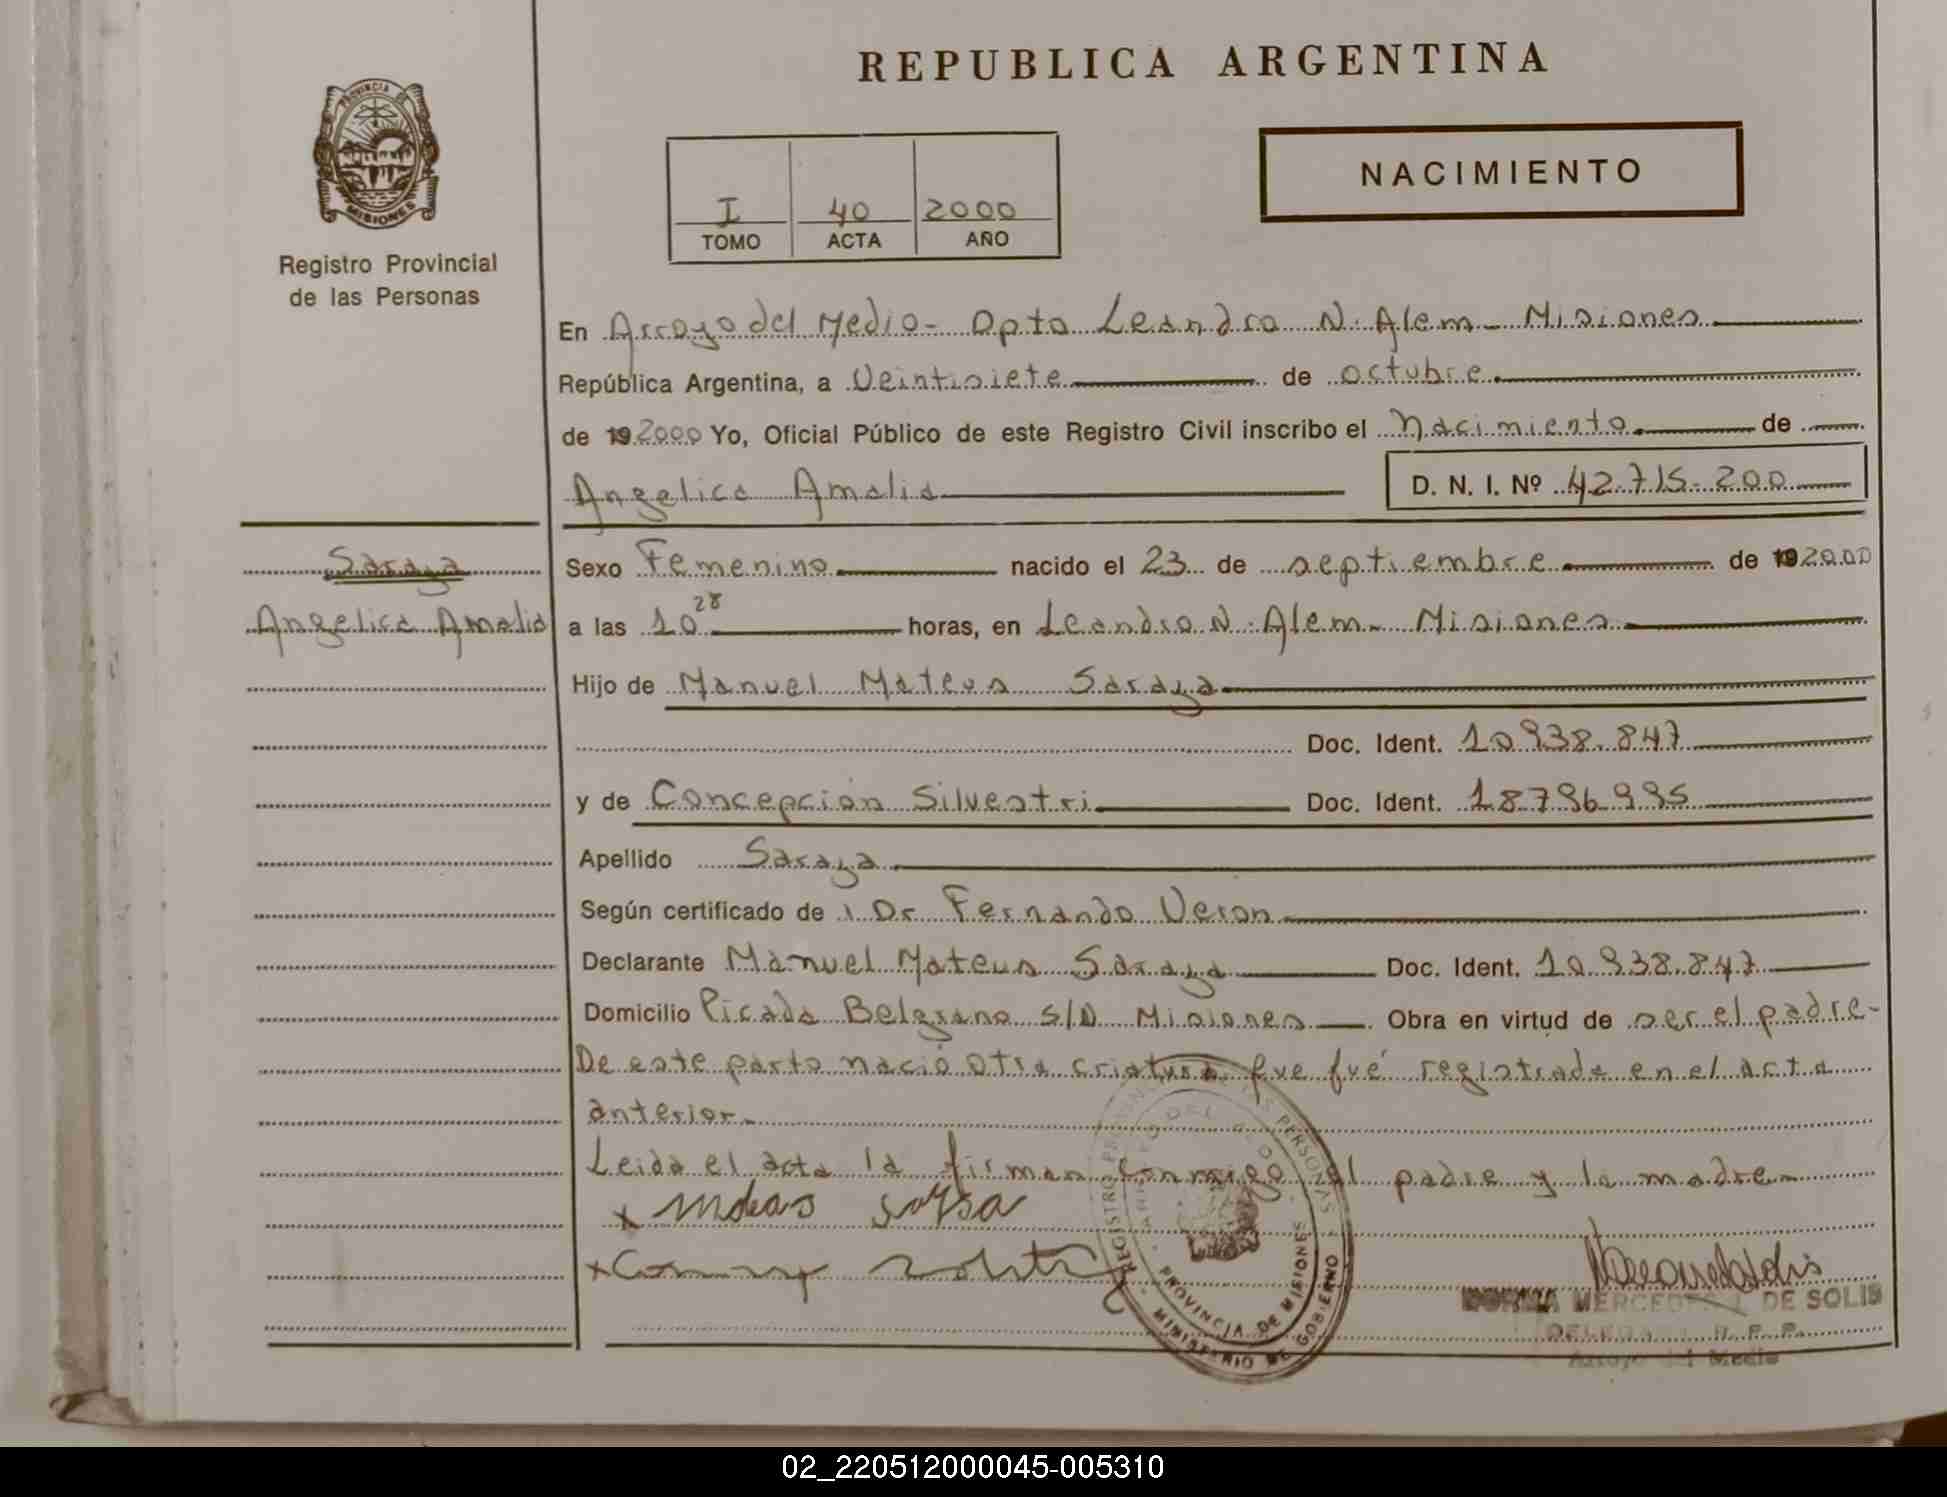 REPUBLICA ARGENTINA
PROVINCIA DE
MISIONES
Registro Provincial
de las Personas
NACIMIENTO
I 40 2000
TOMO ACTA AÑO
En Arroyo del Medio - Dpto Leandro N. Alem - Misiones
República Argentina, a Veintisiete de octubre
de 19 2000 Yo, Oficial Público de este Registro Civil inscribo el Nacimiento de
Angelica Amalia D. N. I. Nº 42.715.200
Saraza
Sexo Femenino nacido el 23 de septiembre de 19 2000
Angelica Amalia
a las 10 28 horas, en Leandro N. Alem - Misiones
Hijo de Manuel Mateus Saraza
Doc. Ident. 10.938.847
y de Concepcion Silvestri Doc. Ident. 18796995
Apellido Saraza
Según certificado de Dr Fernando Veron
Declarante Manuel Mateus Saraza Doc. Ident. 10.938.847
Domicilio Picada Belgrano S/D Misiones Obra en virtud de ser el padre-
De este parto nació otra criatura que fué registrada en el acta
anterior-
Leida el acta la firman conmigo el padre y la madre-
REGISTRO PERSONAS
PROVINCIA DE MISIONES
MINISTERIO DE GOBIERNO
NORMA MERCEDES DE SOLIS
DELEGADA R. P. P.
Arroyo del Medio
02_220512000045-005310